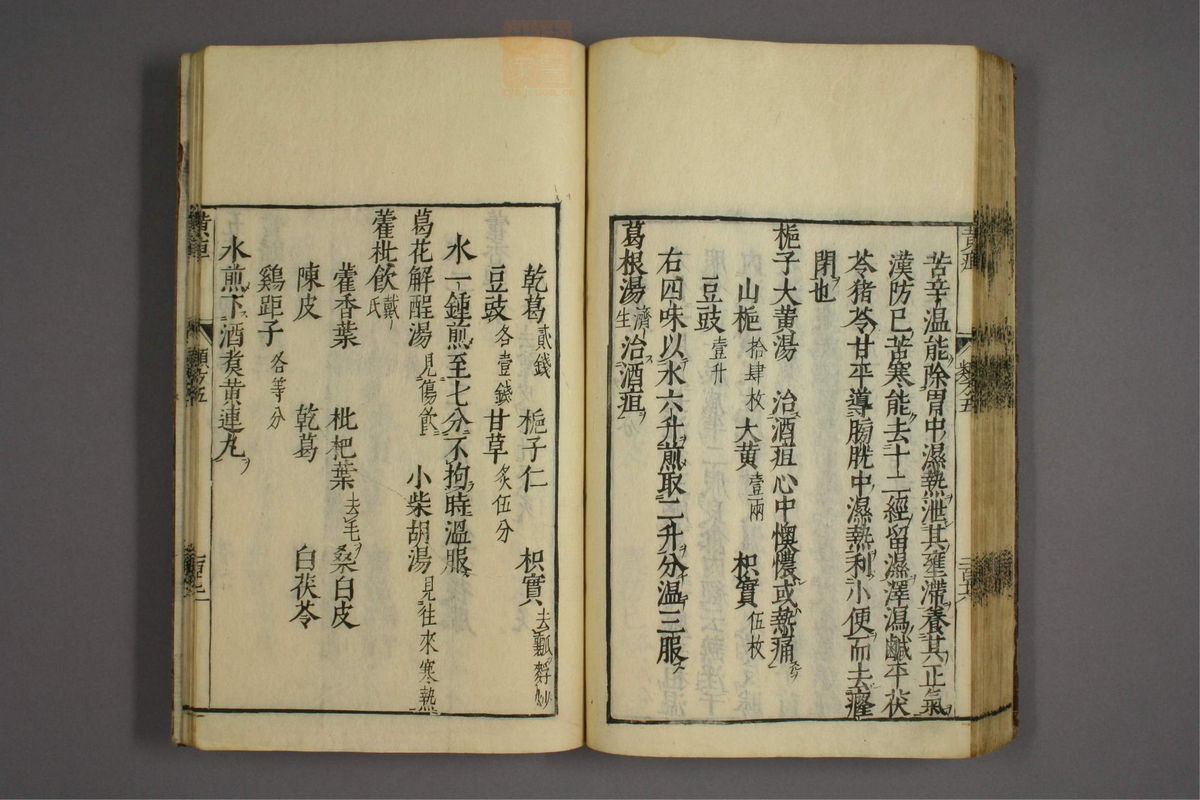 苦辛温能除胃中濕熱泄其壅滯養其正氣
漢防巳苦寒能去十二經留濕澤瀉鹹平茯
苓猪苓甘平導膀胱中濕熱利小便而去癃
閉也
梔子大黄湯 治酒疸心中懊憹或熱痛
山梔拾肆枚 大黄壹兩 枳實伍枚
豆豉壹升
右四味以水六升煎取二升分温三服
葛根湯濟生 治酒疸
乾葛貳錢 梔子仁 枳實去瓤麩炒
豆豉各壹錢 甘草炙伍分
水一鍾煎至七分不拘時溫服
葛花解酲湯見傷飲 小柴胡湯見往來寒熱
藿枇飲戴氏
藿香葉 枇杷葉去毛 桑白皮
陳皮 乾葛 白茯苓
鷄距子各等分
水煎下酒煑黄連丸